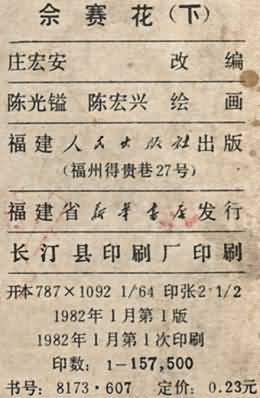 佘赛花（下）
庄宏安 改编
陈光镒 陈宏兴 绘画
福建人民出版社出版
（福州得贵巷27号）
福建省新华书店发行
长汀县印刷厂印刷
开本787×1092 1/64 印张2·1/2
1982年1月第1版
1982年1月第1次印刷
印数：1—157,500
书号：8173·607 定价：0.23元